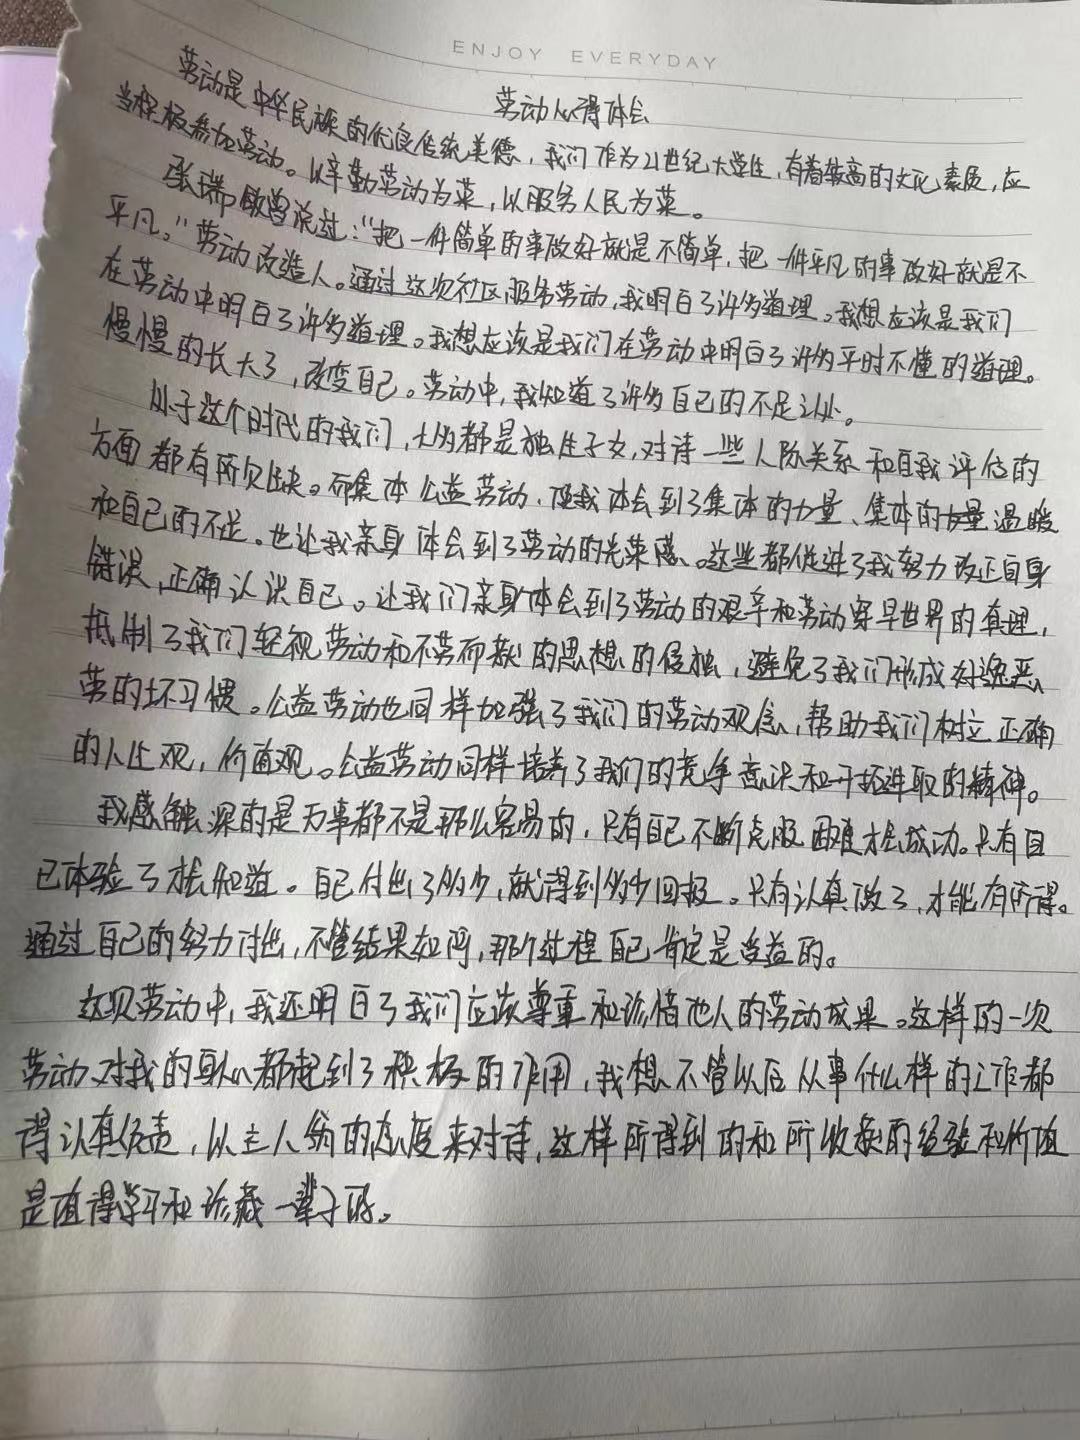 ENJOY EVERYDAY
劳动心得体会
劳动是中华民族的优良传统美德，我们作为21世纪大学生，有着较高的文化素质，应
当积极参加劳动。以辛勤劳动为荣，以服务人民为荣。
张瑞敏曾说过：“把一件简单的事做好就是不简单，把一件平凡的事做好就是不
平凡。”劳动改造人。通过这次社区服务劳动，我明白了许多道理。我想应该是我们
在劳动中明白了许多道理。我想应该是我们在劳动中明白了许多平时不懂的道理。
慢慢的长大了，改变自己。劳动中，我知道了许多自己的不足之处。
处于这个时代的我们，大多都是独生子女，对待一些人际关系和自我评估的
方面都有所欠缺。而集体公益劳动，使我体会到了集体的力量、集体的温暖
和自己的不足。也让我亲身体会到了劳动的光荣感。这些都促进了我努力改正自身
错误，正确认识自己。让我们亲身体会到了劳动的艰辛和劳动创造世界的真理，
抵制了我们轻视劳动和不劳而获的思想的侵蚀，避免了我们形成好逸恶
劳的坏习惯。公益劳动也同样加强了我们的劳动观念，帮助我们树立正确
的人生观，价值观。公益劳动同样培养了我们的竞争意识和开拓进取的精神。
我感触深的是万事都不是那么容易的，只有自己不断克服困难才会成功。只有自
己体验了才会知道。自己付出了多少，就得到多少回报。只有认真做了，才能有所得。
通过自己的努力付出，不管结果如何，那个过程自己肯定是受益的。
这项劳动中，我还明白了我们应该尊重和珍惜他人的劳动成果。这样的一次
劳动对我的身心都起到了积极的作用，我想不管以后从事什么样的工作都
得认真负责，以主人翁的态度来对待，这样所得到的和所收获的经验和价值
是值得学习和珍藏一辈子的。